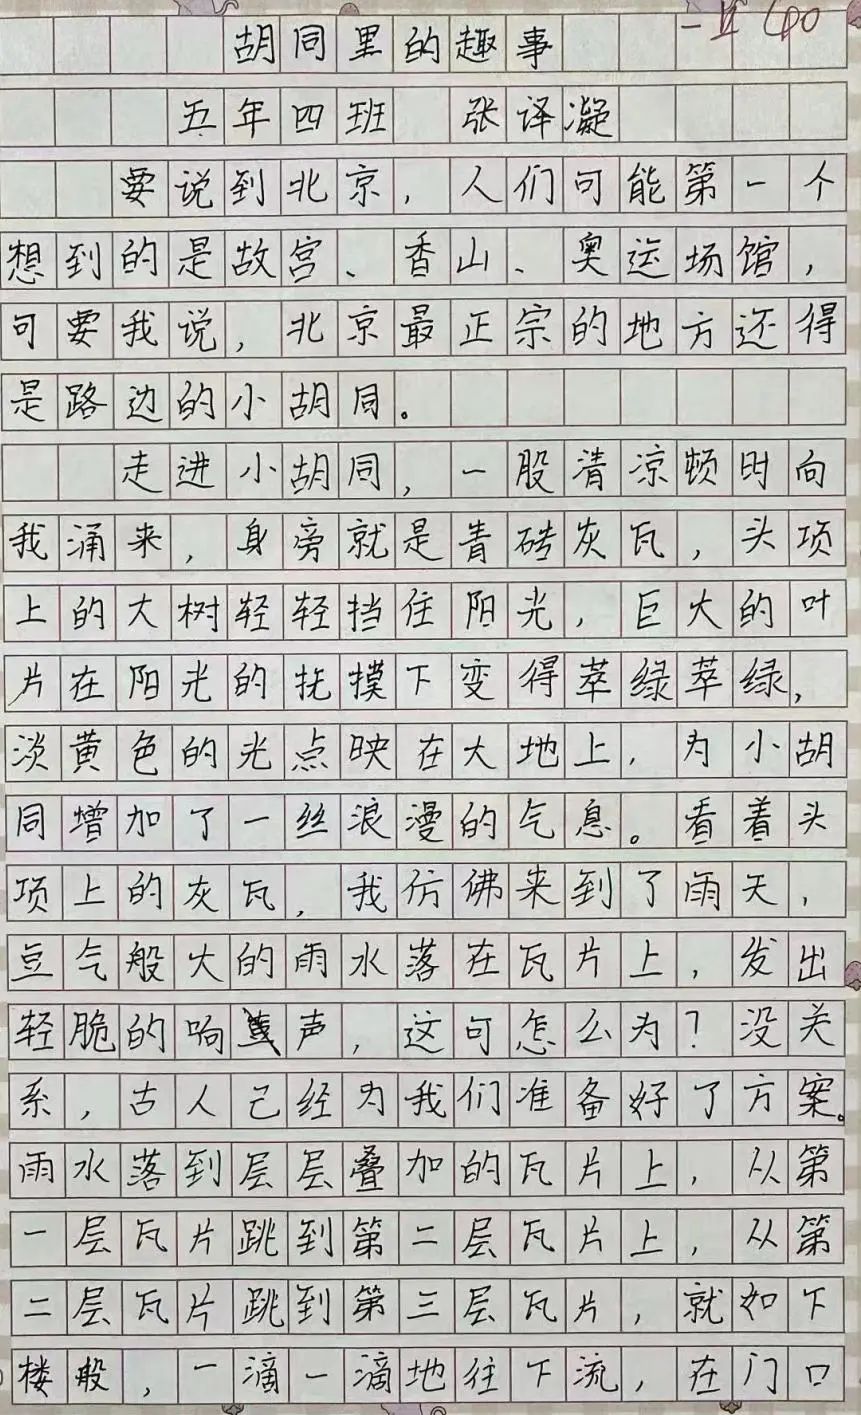 胡同里的趣事
五年四班 张译凝
要说到北京，人们可能第一个
想到的是故宫、香山、奥运场馆，
可要我说，北京最正宗的地方还得
是路边的小胡同。
走进小胡同，一股清凉顿时向
我涌来，身旁就是青砖灰瓦，头项
上的大树轻轻挡住阳光，巨大的叶
片在阳光的抚摸下变得萃绿萃绿，
淡黄色的光点映在大地上，为小胡
同增加了一丝浪漫的气息。看着头
项上的灰瓦，我仿佛来到了雨天，
豆气般大的雨水落在瓦片上，发出
轻脆的响声，这可怎么为？没关
系，古人己经为我们准备好了方案。
雨水落到层层叠加的瓦片上，从第
一层瓦片跳到第二层瓦片上，从第
二层瓦片跳到第三层瓦片，就如下
楼般，一滴一滴地往下流，在门口